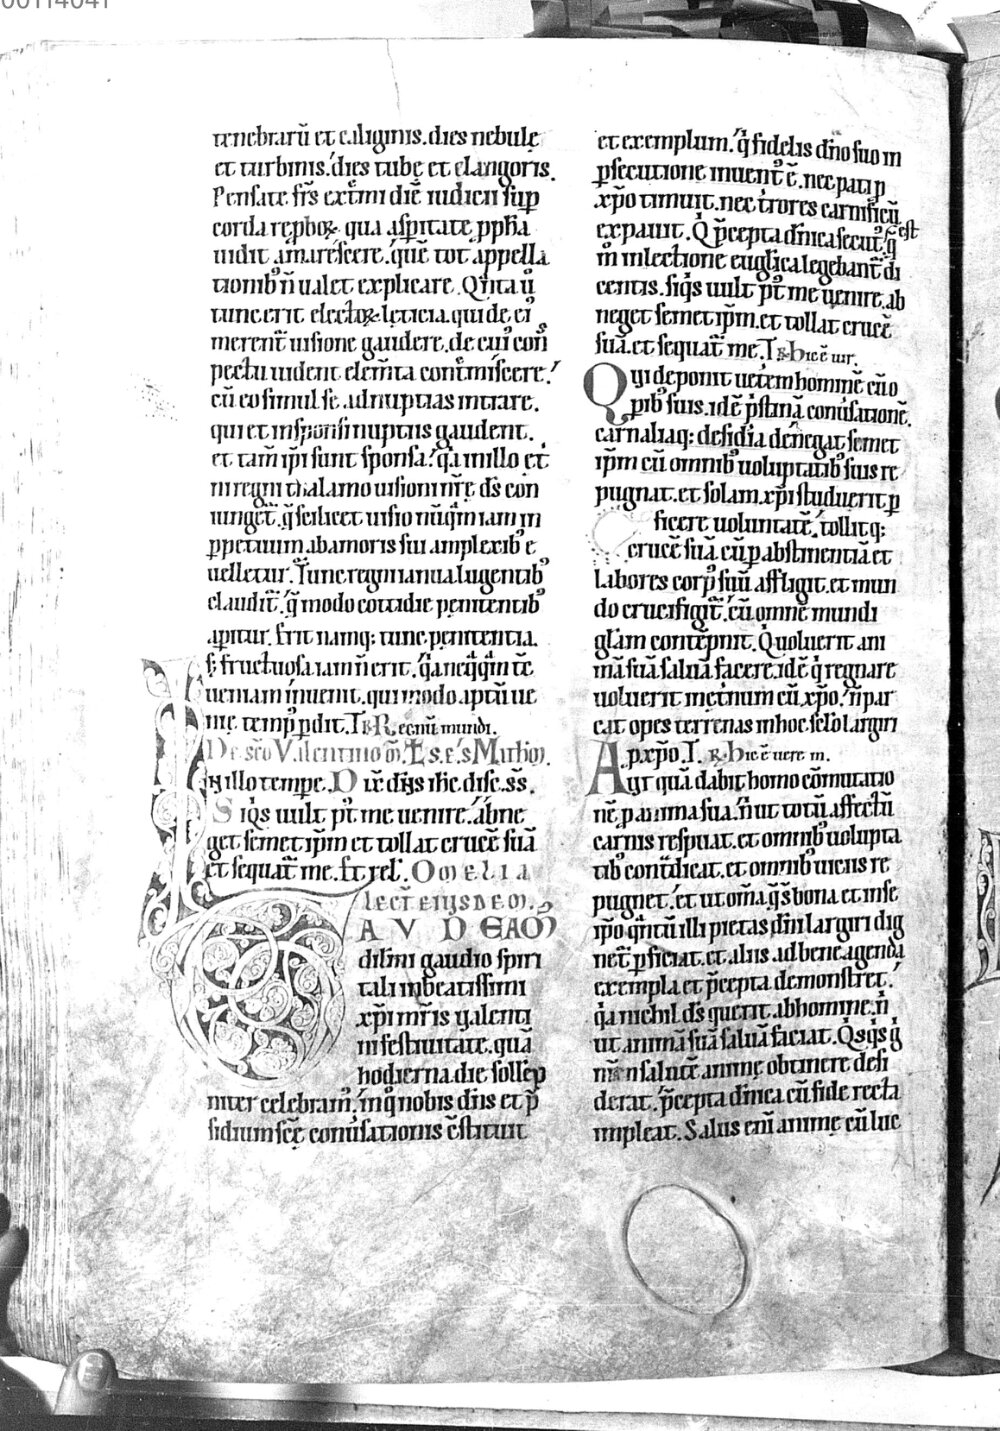 00114041
tenebrarū et caliginis. dies nebulę
et turbinis. dies tubę et clangoris.
Pensate fr̄s extr̄mi diē iudicii sup
corda rep̄boꝝ qua asp̄itate ꝓph̄a
uidit amarescere. quē tot appella
tionibꝰ n̄ ualet explicare. Q̄nta ū
tunc erit electoꝝ leticia. qui de eiꝰ
merent̄ uisione gaudere. de cuiꝰ con
pectu uident elem̄ta contr̄miscere.
cū eo simul se ad nuptias intrare.
qui et in sponsi nuptiis gaudent.
et tam̄ ip̄i sunt sponsa. q̄a in illo et̄
ni regni thalamo uisioni nr̄ę dc̄s con
iunget̄. q̄ scilicet uisio nūq̄m iam in
ꝑpetuum ab amoris sui amplexibꝰ e
uelletur. Tunc regni ianua lugentibꝰ
claudit̄. q̄ modo cottidie penitentibꝰ
aꝑitur. Erit namq; tunc penitentia.
s; fructuosa iam n̄ erit. q̄a neq̄q̄m tc̄
ueniam inuenit. qui modo aptū ue
nię temp̄ ꝑdit. T R Regnū mundi.
De sc̄o Valentino m̄. L s. e. s Mathm̄.
In illo tempr̄e. Dix̄. dn̄s ih̄c disc. ss̄.
Siq̄s uult pꝰt me uenire. abne
get semet ip̄m et tollat crucē suā
et sequat̄ me. Et rel̄. Omelia
lect̄ eiusdem.
AVDEAM
dil̄mi gaudio spiri
tali in beatissimi
xp̄i mr̄is ualenti
ni festiuitate. quā
hodierna die sollēp
niter celebramꝰ. in q̄ nobis dn̄s et p̄
sidium sc̄ę conūsationis c̄stituit
et exemplum. q̄ fidelis dn̄o suo in
ꝑsecutione inuentꝰ ē. nec pati ꝓ
xp̄o timuit. nec tr̄ores carnificū
expauit. Q p̄cepta dn̄ica secutꝰ ē
m̄ in lectione euglica legebant̄ di
centis. siq̄s uult pꝰt me uenire. ab
neget semet ip̄m. et tollat crucē
suā. et sequat̄ me. T R Hic ē uir.
Qui deponit uet̄em hominē cū o
ꝑibꝰ suis. idē p̄stinā conūsationē.
carnaliaq; desidia denegat semet
ip̄m cū omnibꝰ uoluptatibꝰ suis re
pugnat. et solam xp̄i studuerit ꝑ
ficere uoluntatē. tollitq;
crucē suā. cū ꝑ abstinentiā et
labores corpꝰ suū affligit. et mun
do crucifigit̄. cū omnē mundi
gl̄am contēpnit. Q uoluerit ani
mā suā saluā facere. idē q̄ regnare
uoluerit inęt̄num cū xp̄o. n̄ par
cat opes terrenas in hoc sc̄lo largiri
a p xp̄o. T R Hic ē uere m̄.
Aut quā dabit homo cōmutatio
nē. p anima sua. n̄ ut totū affectū
carnis respuat. et omnibꝰ uolupta
tibꝰ conṫdicat. et omnibꝰ uiciis re
pugnet. et ut om̄a. q̄ s̄ bona et in se
ip̄o q̄ntū illi pietas dn̄i largiri dig
net̄ ꝑficiat. et aliis ad bene agenda
exempla et p̄cepta demonstret.
q̄a nichil dc̄s querit ab homine. n̄
ut animā suā saluā faciat. Q̄sq̄s g̊
nīēn salutē animę obtinere desi
derat. p̄cepta dn̄ica cū fide recta
impleat. Salus eni animę cū luc